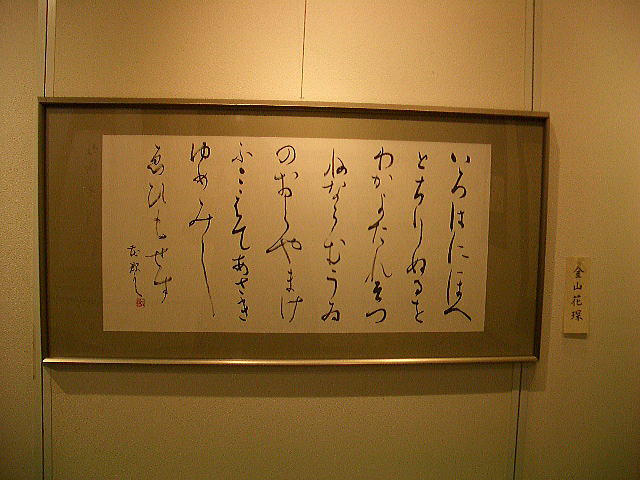 いろはにほへ
とちりぬるを
わかよたれそつ
ねならむうゐ
のおくやまけ
ふこえてあさき
ゆめみし
ゑひもせす
金山花琛